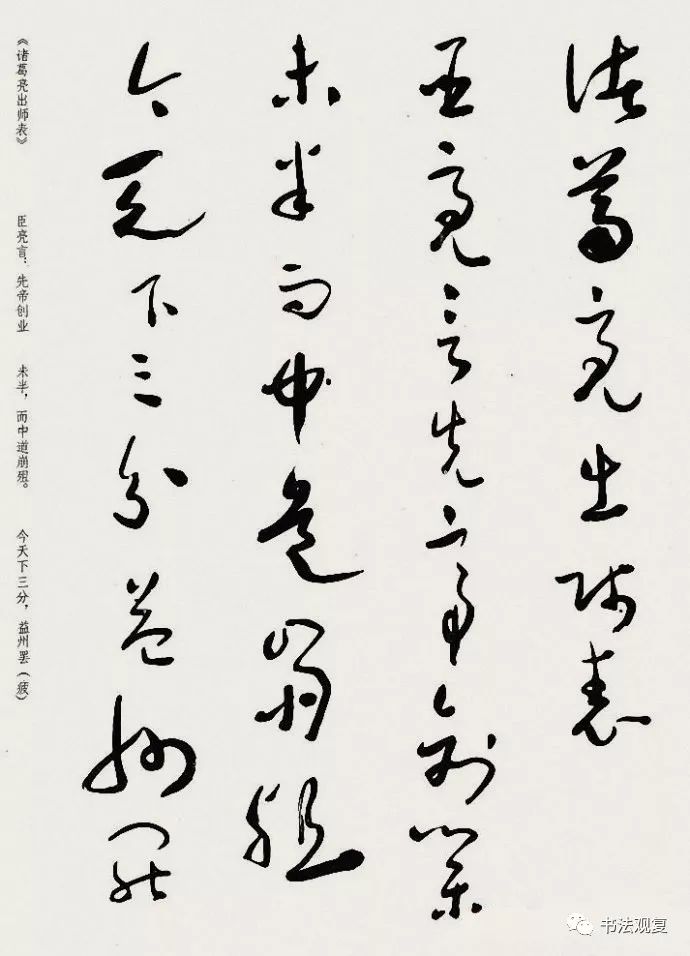 诸葛亮出师表
臣亮言先帝创业
未半而中道崩殂
今天下三分益州罢
《诸葛亮出师表》 臣亮言：先帝创业 未半，而中道崩殂。 今天下三分，益州罢（疲）
书法观复